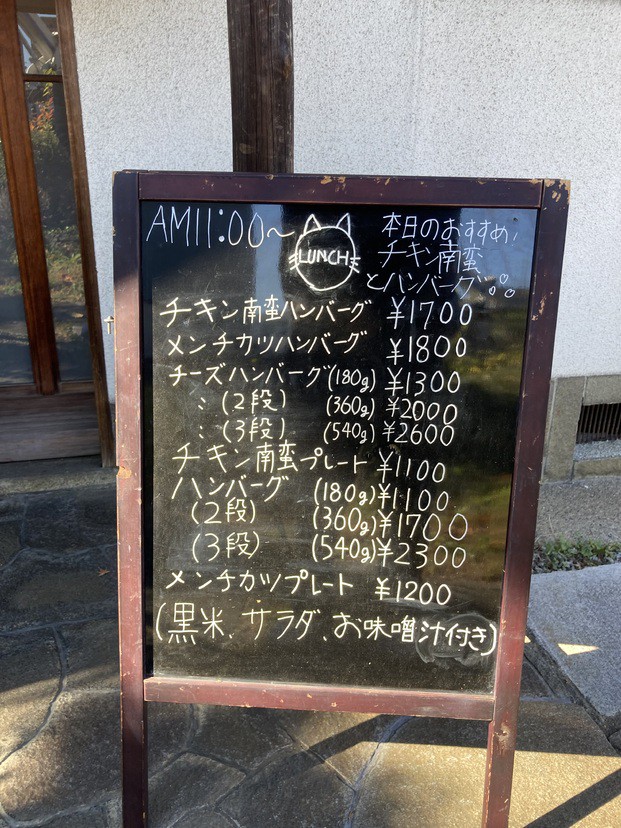 AM11:00～
LUNCH
本日のおすすめ!
チキン南蛮
とハンバーグ
チキン南蛮ハンバーグ ¥1700
メンチカツハンバーグ ¥1800
チーズハンバーグ(180g) ¥1300
: (2段) (360g) ¥2000
: (3段) (540g) ¥2600
チキン南蛮プレート ¥1100
ハンバーグ (180g) ¥1100
(2段) (360g) ¥1700
(3段) (540g) ¥2300
メンチカツプレート ¥1200
(黒米、サラダ、お味噌汁付き)